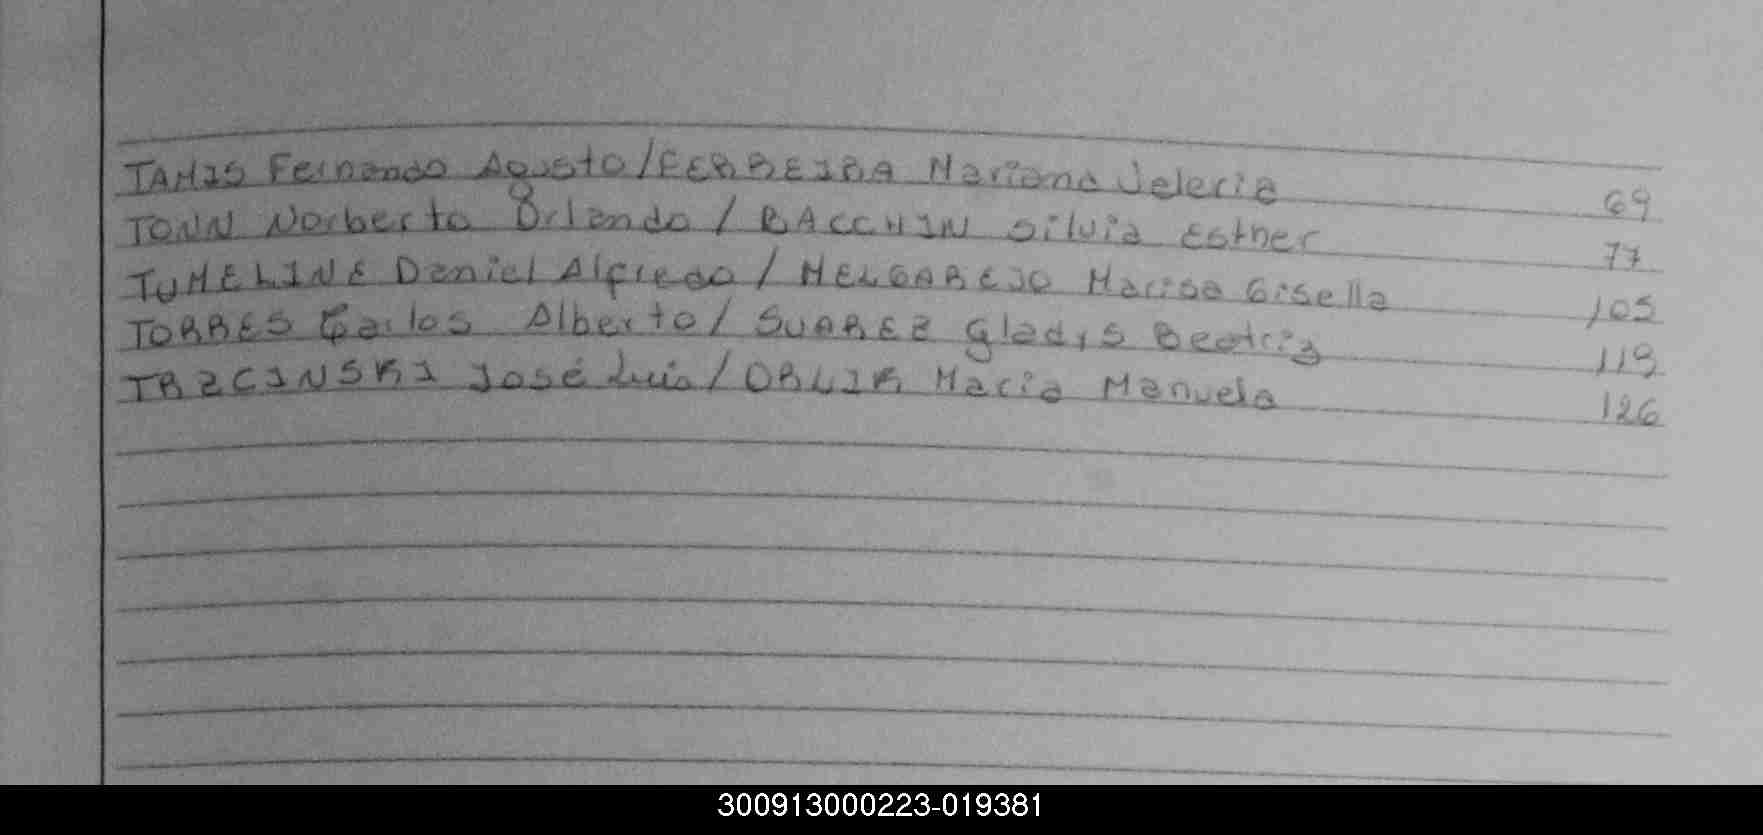 TAMIS Fernando Agusto/FERREIRA Mariana Valeria 69
TONN Norberto Orlando / BACCHIN Silvia Esther 77
TUMELINE Daniel Alfredo / MELGAREJO Marisa Gisella 105
TORRES Carlos Alberto / SUAREZ Gladys Beatriz 119
TRZCINSKI José Luis / OBLIK Maria Manuela 126
300913000223-019381